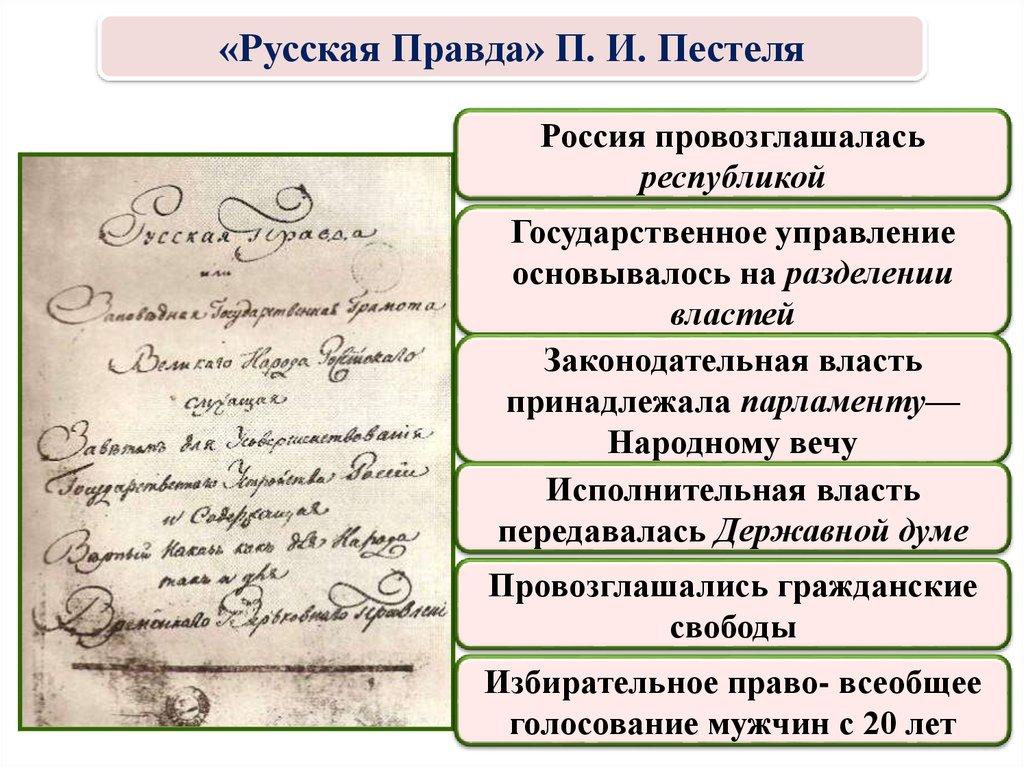 «Русская Правда» П. И. Пестеля
Русская Правда
или
Заповѣдная Государственная Грамота
Великаго Народа Россійскаго
служащая
Завѣтомъ для Усовершенствованія
Государственнаго Устройства Россіи
и Содержащая
Вѣрный Наказъ какъ для Народа
такъ и для
Временнаго Верьховнаго Правленія
Россия провозглашалась
республикой
Государственное управление
основывалось на разделении
властей
Законодательная власть
принадлежала парламенту—
Народному вечу
Исполнительная власть
передавалась Державной думе
Провозглашались гражданские
свободы
Избирательное право- всеобщее
голосование мужчин с 20 лет